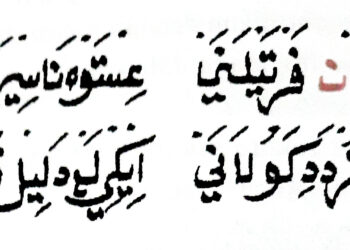 ن فَرْتَيْلَنَيْ عِسْتَوْهَ نَاسِيرَ
دَدِ كَوُلَانَيْ اِيكِي لَعْ دَلِيلْ